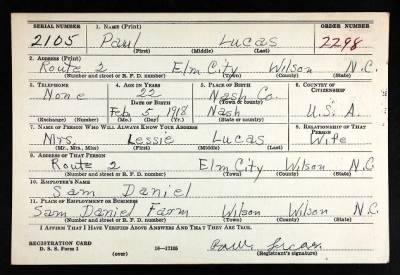 SERIAL NUMBER 1. NAME (Print) ORDER NUMBER
2105 Paul Lucas 2298
(First) (Middle) (Last)
2. ADDRESS (Print)
Route 2 Elm City Wilson N.C.
(Number and street or R. F. D. number) (Town) (County) (State)
3. TELEPHONE 4. AGE IN YEARS 5. PLACE OF BIRTH 6. COUNTRY OF CITIZENSHIP
None 22 Nash Co.
DATE OF BIRTH (Town or county)
Feb 5 1918 Nash U.S.A.
(Exchange) (Number) (Mo.) (Day) (Yr.) (State or country)
7. NAME OF PERSON WHO WILL ALWAYS KNOW YOUR ADDRESS 8. RELATIONSHIP OF THAT PERSON
Mrs. Lessie Lucas Wife
(Mr., Mrs., Miss) (First) (Middle) (Last)
9. ADDRESS OF THAT PERSON
Route 2 Elm City Wilson N.C.
(Number and street or R. F. D. number) (Town) (County) (State)
10. EMPLOYER'S NAME
Sam Daniel
11. PLACE OF EMPLOYMENT OR BUSINESS
Sam Daniel Farm Wilson Wilson N.C.
(Number and street or R. F. D. number) (Town) (County) (State)
I AFFIRM THAT I HAVE VERIFIED ABOVE ANSWERS AND THAT THEY ARE TRUE.
REGISTRATION CARD
D. S. S. Form 1 16—17105 Paul Lucas
(over) (Registrant's signature)